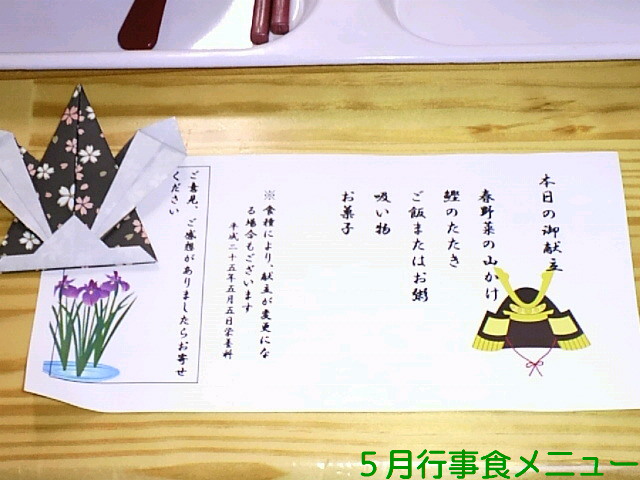 本日の御献立
春野菜の山かけ
鰹のたたき
ご飯またはお粥
吸い物
お菓子
※食種により、献立が変更にな
る場合もございます
平成二十五年五月五日栄養科
ご意見、ご感想がありましたらお寄せ
ください
５月行事食メニュー